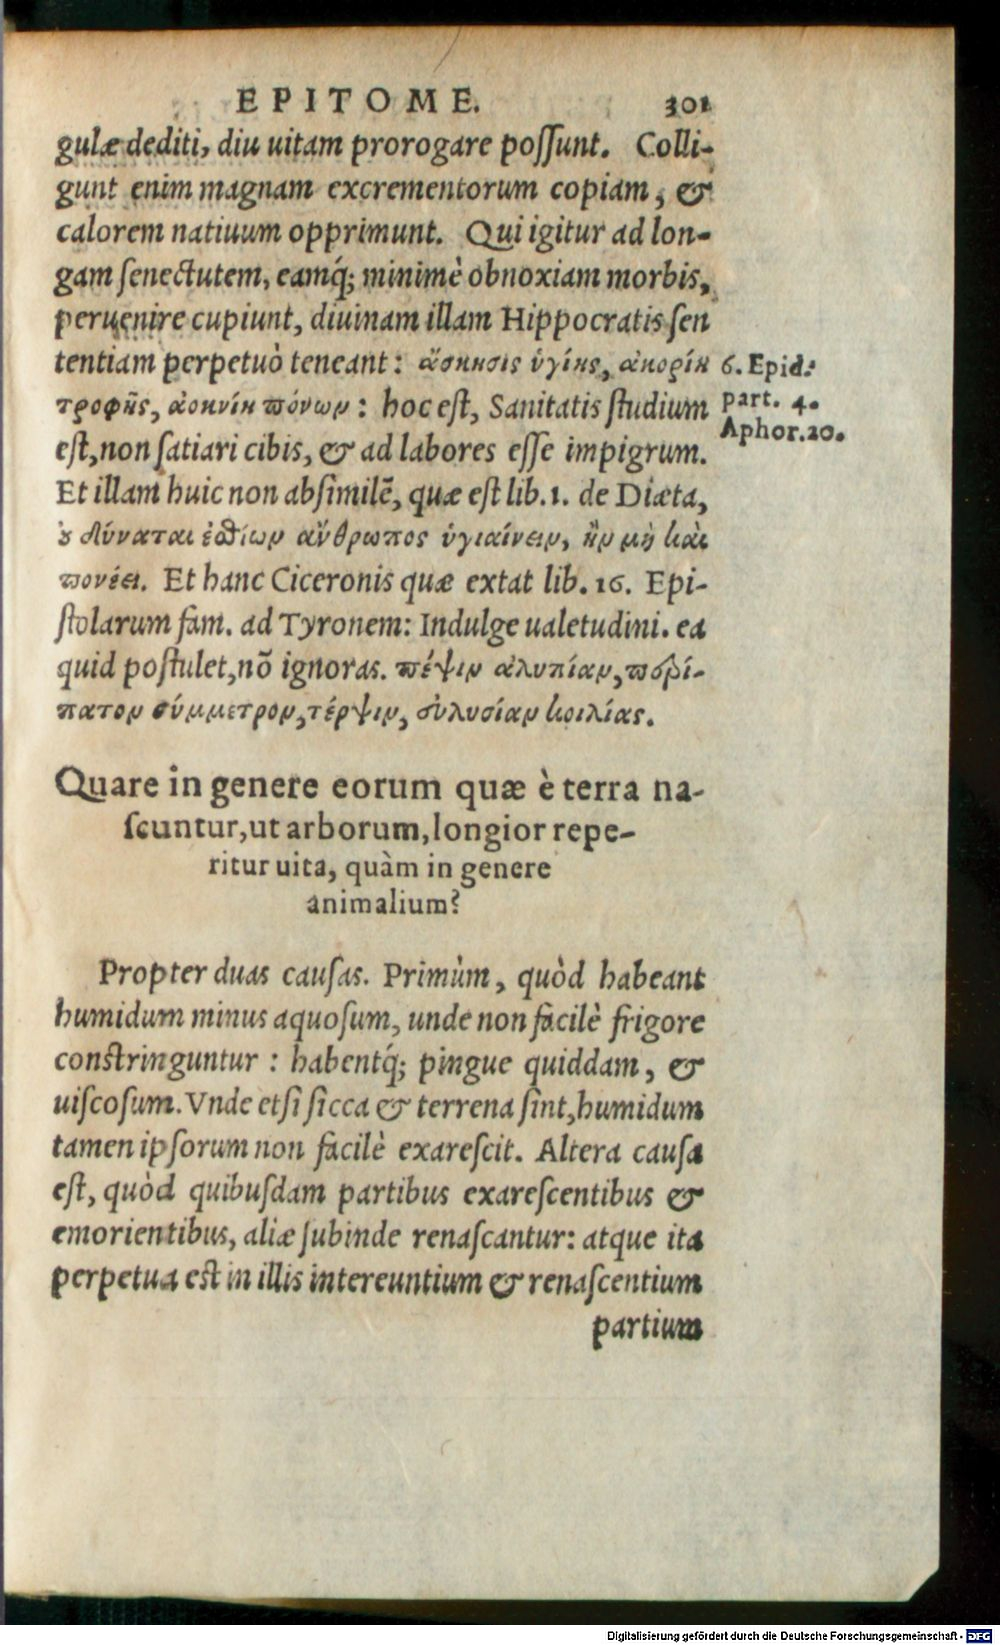 EPITOME. 301
gulæ dediti, diu uitam prorogare poſſunt. Colli-
gunt enim magnam excrementorum copiam, &
calorem natiuum opprimunt. Qui igitur ad lon-
gam ſenectutem, eamq́; minimè obnoxiam morbis,
peruenire cupiunt, diuinam illam Hippocratis ſen
tentiam perpetuò teneant: ἄσκησις ὑγίης, ἀκορίη
6. Epid.
τροφῆς, ἀοκνίη πόνων: hoc eſt, Sanitatis ſtudium
part. 4.
Aphor. 20.
eſt, non ſatiari cibis, & ad labores eſſe impigrum.
Et illam huic non abſimilẽ, quæ eſt lib. 1. de Diæta,
ȣ δύναται ἐσθίων ἄνθρωπος ὑγιαίνειν, ἢν μὴ καὶ
πονέει. Et hanc Ciceronis quæ extat lib. 16. Epi-
ſtolarum fam. ad Tyronem: Indulge ualetudini. ea
quid poſtulet, nõ ignoras. πέψιν ἀλυπίαν, περί-
πατον σύμμετρον, τέρψιν, ευλυσίαν κοιλίας.
Quare in genere eorum quæ è terra na-
ſcuntur, ut arborum, longior repe-
ritur uita, quàm in genere
animalium?
Propter duas cauſas. Primùm, quòd habeant
humidum minus aquoſum, unde non facilè frigore
conſtringuntur: habentq́; pingue quiddam, &
uiſcoſum. Vnde etſi ſicca & terrena ſint, humidum
tamen ipſorum non facilè exareſcit. Altera cauſa
eſt, quòd quibuſdam partibus exareſcentibus &
emorientibus, aliæ ſubinde renaſcantur: atque ita
perpetua eſt in illis intereuntium & renaſcentium
partium
Digitalisierung gefördert durch die Deutsche Forschungsgemeinschaft - DFG